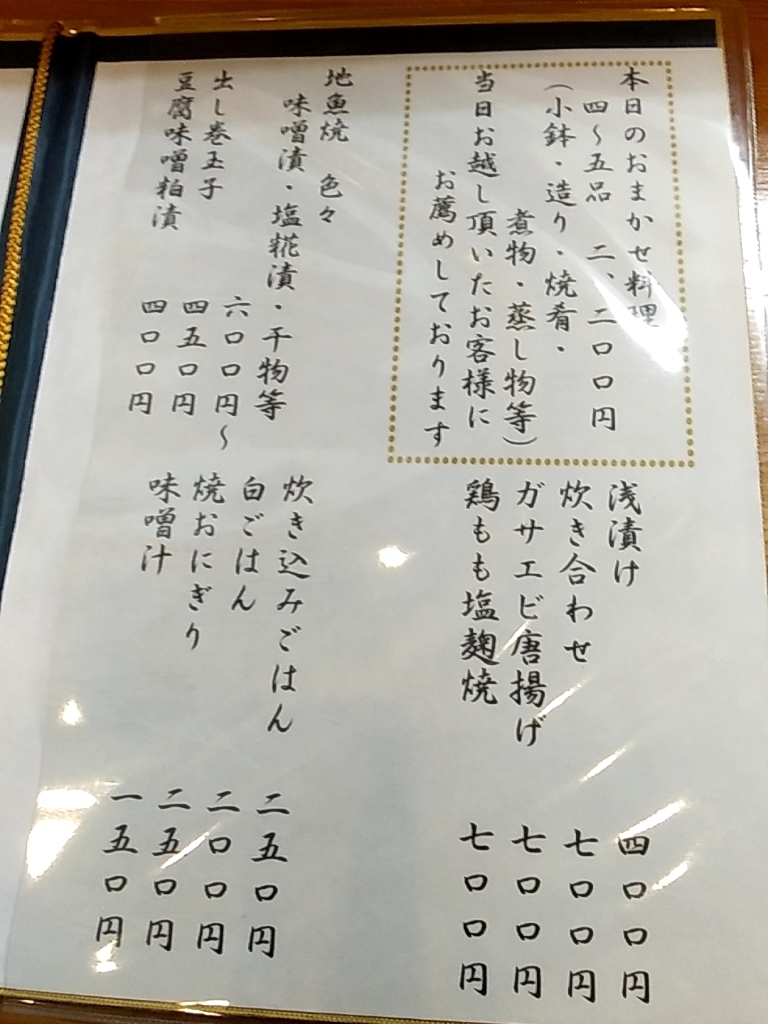 本日のおまかせ料理
四〜五品 二、二〇〇円
(小鉢・造り・焼肴・
煮物・蒸し物等)
当日お越し頂いたお客様に
お薦めしております
地魚焼 色々
味噌漬・塩糀漬・干物等
六〇〇円〜
出し巻玉子 四五〇円
豆腐味噌粕漬 四〇〇円
浅漬け 四〇〇円
炊き合わせ 七〇〇円
ガサエビ唐揚げ 七〇〇円
鶏もも塩麹焼 七〇〇円
炊き込みごはん 二五〇円
白ごはん 二〇〇円
焼おにぎり 二五〇円
味噌汁 一五〇円